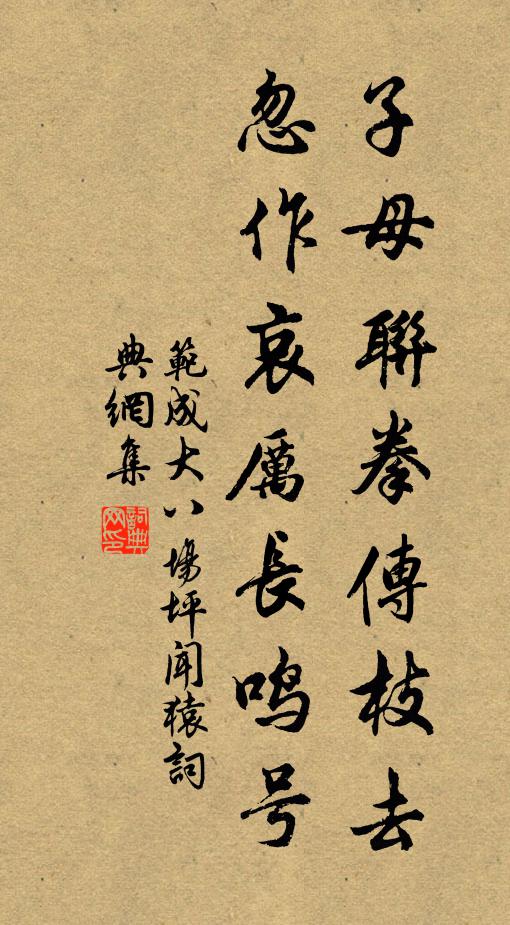 子母聯拳傳枝去
忽作哀厲長鸣号
範成大八場坪聞猿詞
典網集
詞典網印